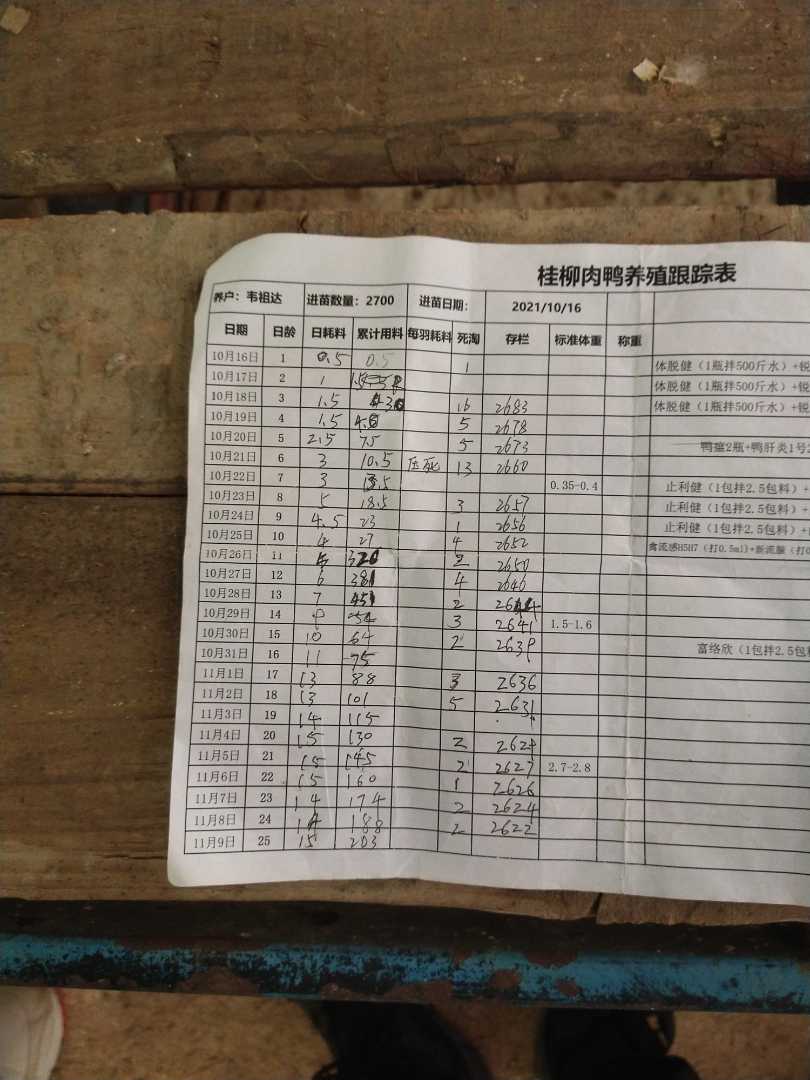 桂柳肉鸭养殖跟踪表
养户：韦祖达 进苗数量：2700 进苗日期： 2021/10/16
日期 日龄 日耗料 累计用料 每羽耗料 死淘 存栏 标准体重 称重
10月16日 1 0.5 0.5 1 体脱健（1瓶拌500斤水）+锐
10月17日 2 1 体脱健（1瓶拌500斤水）+锐
10月18日 3 1.5 16 2683 体脱健（1瓶拌500斤水）+锐
10月19日 4 1.5 5 2678
10月20日 5 2.5 7.5 5 2673 鸭瘟2瓶+鸭肝炎1号2
10月21日 6 3 10.5 压死 13 2660
10月22日 7 3 13.5 0.35-0.4 止利健（1包拌2.5包料）+
10月23日 8 5 18.5 3 2657 止利健（1包拌2.5包料）+
10月24日 9 4.5 23 1 2656 止利健（1包拌2.5包料）+
10月25日 10 4 27 4 2652 禽流感H5H7（打0.5ml)+新流腺（打0
10月26日 11 2 2650
10月27日 12 6 38 4 2646
10月28日 13 7 45 2 2644
10月29日 14 9 54 3 2641 1.5-1.6
10月30日 15 10 64 2 2639 富络欣（1包拌2.5包料
10月31日 16 11 75
11月1日 17 13 88 3 2636
11月2日 18 13 101 5 2631
11月3日 19 14 115
11月4日 20 15 130 2 2629
11月5日 21 15 145 2 2627 2.7-2.8
11月6日 22 15 160 1 2626
11月7日 23 14 174 2 2624
11月8日 24 14 188 2 2622
11月9日 25 15 203